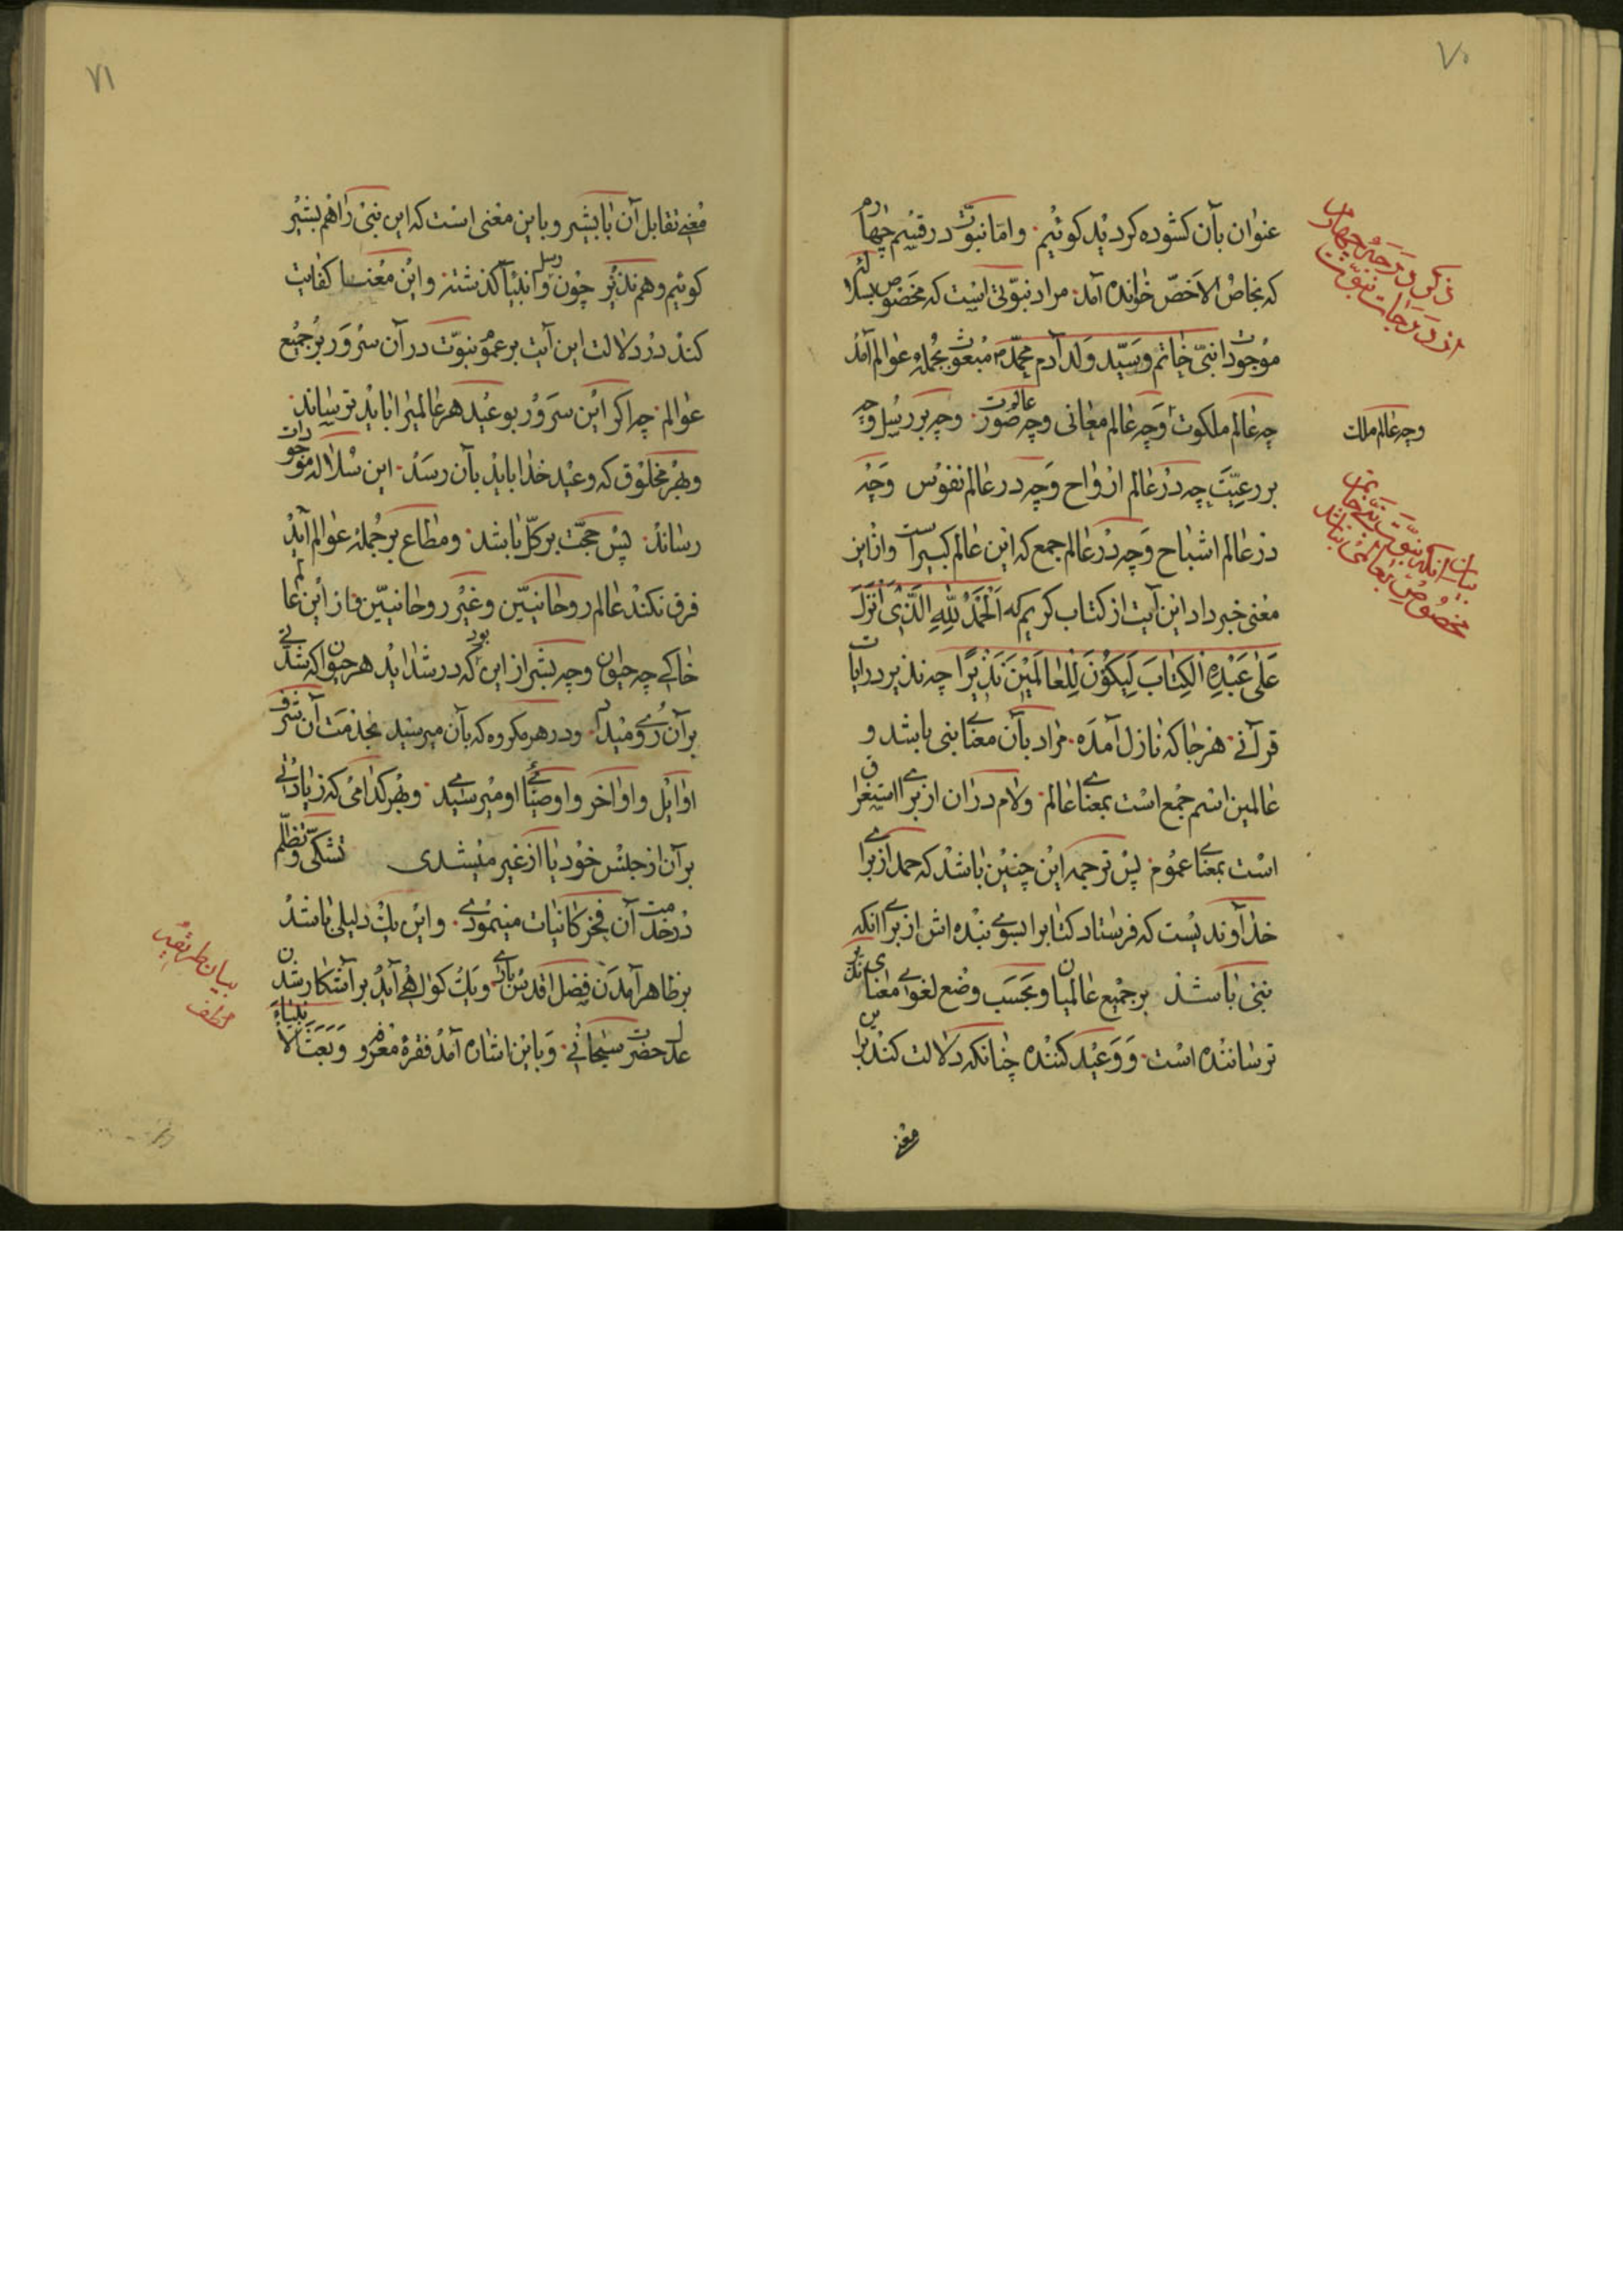 ٧٠
عنوان بآن کشوده کردید کوئیم و امّا نبوّت در قسم چهارم
که بخاصّ الاخصّ خوانده آمد مراد نبوّتی است که مخصوص بسلاله
موجودات نبیّ خاتم و سیّد ولد آدم محمّد م مبعوث بجمله عوالم آمد
چه عالم ملکوت و چه عالم معانی و چه عالم صورت و چه بر رسل و چه
بر رعیّت چه در عالم ارواح و چه در عالم نفوس و چه
در عالم اشباح و چه در عالم جمع که این عالم کبیر است و از این
معنی خبر داد این آیت از کتاب کریم که اَلْحَمْدُ لِلّٰهِ الَّذِی اَنْزَلَ
عَلٰی عَبْدِهِ الْکِتٰابَ لِیَکُوْنَ لِلْعٰالَمِیْنَ نَذِیْرًا چه نذیر در ایات
قرآنے هر جا که نازل آمده مراد بآن معناے نبی باشد و
عالمین اسم جمع است بمعناے عالم و لام در ان از براے استغراق
است بمعناے عموم پس ترجمه این چنین باشد که حمد از براے
خداوندیست که فرستاد کتابرا بسوے بنده اش از براے انکه
نبی باشد بر جمیع عالمیان و بحسب وضع لغوے معنای نذیر
ترساننده است و وعید کننده چنانکه دلالت کند براین
معنے
ذکر درجۀ چهارم
از درجات نبوّت
و چه عالم ملک
بیان انکه نبوّت نبیّ خاتم
مخصوص بعالمی نباشد
٧١
معنے تقابل آن با بشیر و باین معنی است که این نبی را هم بشیر
کوئیم و هم نذیر چون رسل و انبیا کذشته و این معنی کفایت
کند در دلالت این آیت بر عموم نبوّت در آن سرور بر جمیع
عوالم چه اکر این سرور بوعید هر عالمیرا باید ترساند
و بهر مخلوق که وعید خدا باید بآن رسد این سلاله موجودات
رساند پس حجّت بر کلّ باشد و مطاع بر جمله عوالم آید
فرق نکند عالم روحانیّین و غیر روحانیّین و از این عالم
خاکے چه حیوان و چه بشر از این بود که در رشد اید هر حیوان که شدّتے
بر آن روے میداد و در هر مکروه که بآن میرسید بخدمت آن شرف
اوایل و اواخر و اوصیاے او میرسید و بهر کدامی که زیادتے
بر آن از جنس خود یا از غیر میشدی تشکّی و تظلّم
در خدمت آن فخر کاینات مینمودے و این یک دلیلی باشد
بر ظاهر آمدن فضل اقدس بارے و یک کواهے آید بر آشکار شدن
عدل حضرت سبحانے و باین اشاره آمد فقرۀ معزو و بَعَثَ الانبیاءَ
بیان طریقۀ
لطف